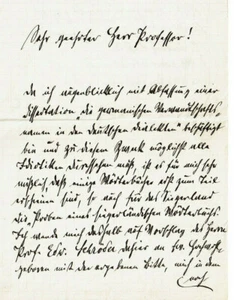 Sehr geehrter Herr Professor!
Da ich augenblicklich mit Abfassung einer
Dissertation „die germanischen Verwandtschafts-
namen in den deutschen Dialekten" beschäftigt
bin und zu diesem Zweck möglichst alle
Idiotiken durchsehen muß, ist es für mich sehr
mißlich daß einige Wörterbücher erst zum Teil
erschienen sind, so auch für das Siegerland
die Proben eines siegerländischen Wörterbuchs.
Ich wende mich deshalb auf Vorschlag des Herrn
Prof. Edw. Schröder dahier an Ew. Hochwohl-
geboren mit der ergebenen Bitte, mich in dem